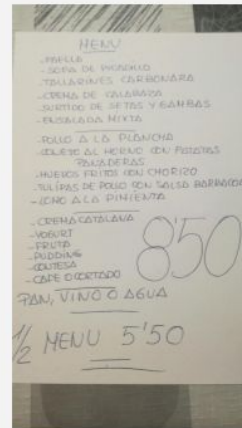 MENU
-PAELLA
-SOPA DE PICADILLO
-TALLARINES CARBONARA
-CREMA DE CALABAZA
-SURTIDO DE SETAS Y GAMBAS
-ENSALADA MIXTA
-POLLO A LA PLANCHA
-CONEJO AL HORNO CON PATATAS
PANADERAS
-HUEVOS FRITOS CON CHORIZO
-TULIPAS DE POLLO CON SALSA BARBACOA
-LOMO A LA PIMIENTA
-CREMA CATALANA
-YOGURT
-FRUTA
-PUDDING
-CONTESA
-CAFE O CORTADO
8'50
PAN, VINO O AGUA
1/2 MENU 5'50